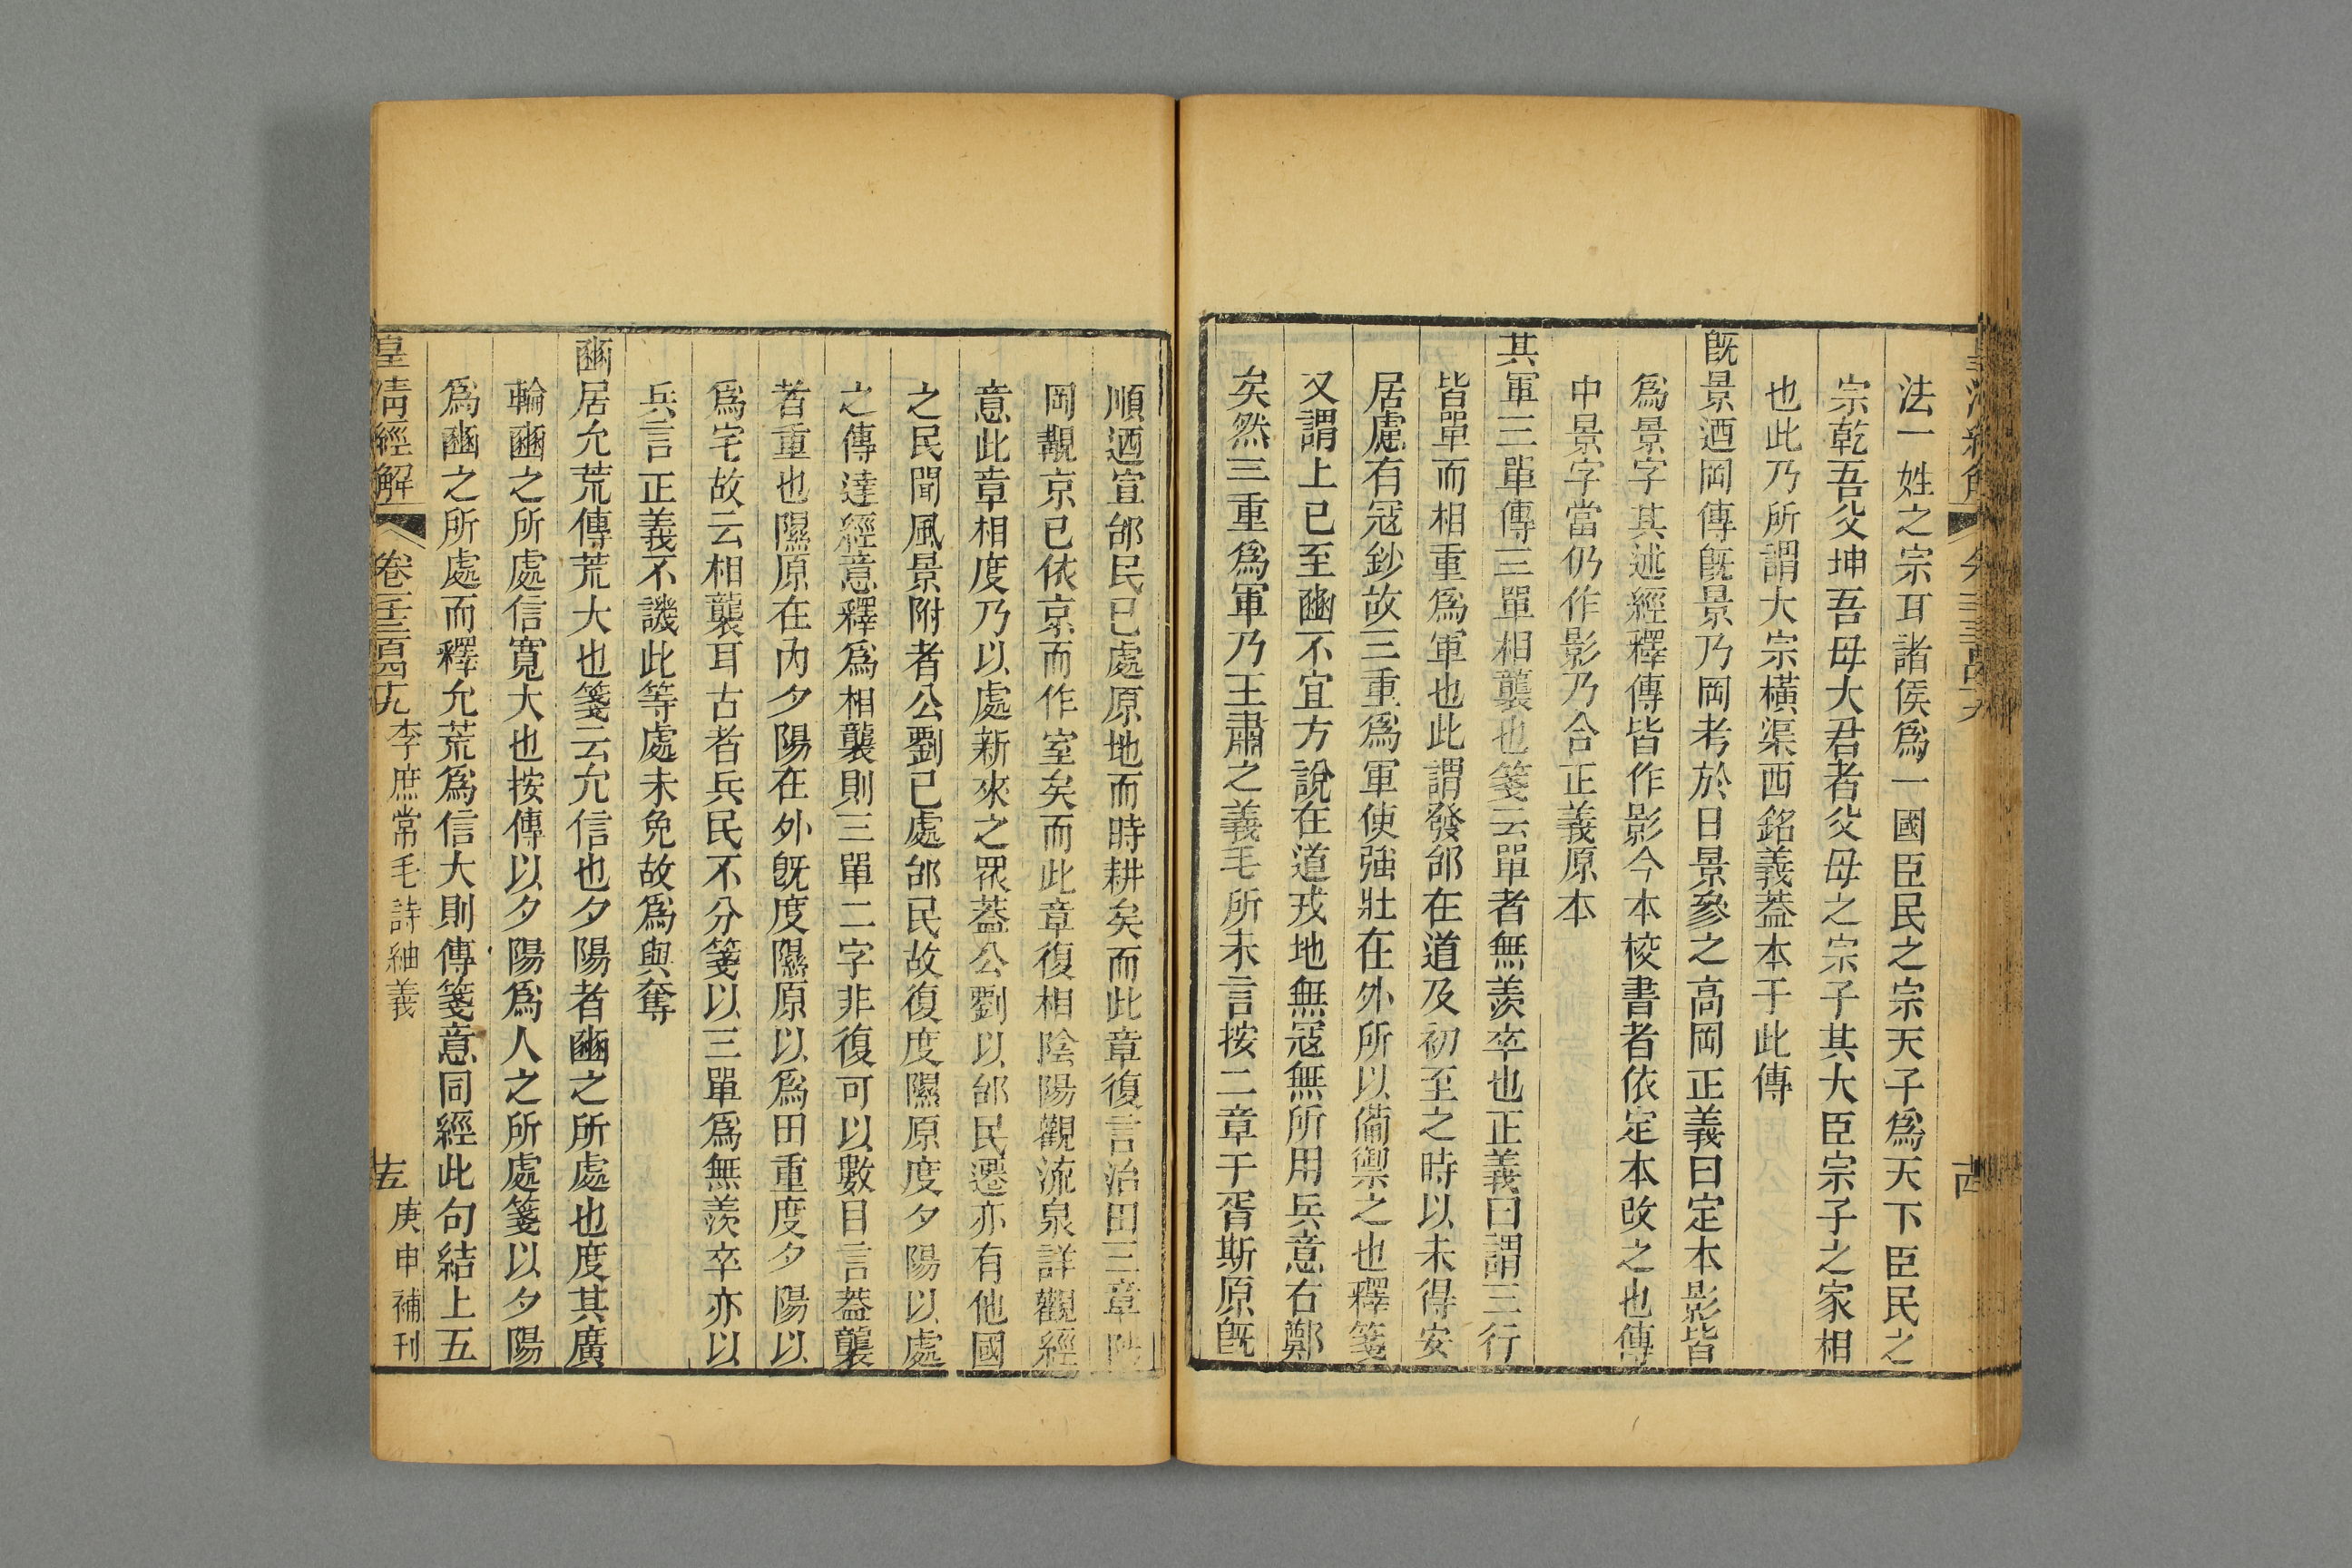 法一姓之宗耳諸侯爲一國臣民之宗天子爲天下臣民之
宗乾吾父坤吾母大君者父母之宗子其大臣宗子之家相
也此乃所謂大宗橫渠西銘義葢本于此傳
旣景迺岡傳旣景乃岡考於日景參之高岡正義曰定本影皆
爲景字其述經釋傳皆作影今本校書者依定本改之也傳
中景字當仍作影乃合正義原本
其軍三單傳三單相襲也箋云單者無羨卒也正義曰謂三行
皆單而相重爲軍也此謂發邰在道及初至之時以未得安
居慮有寇鈔故三重爲軍使強壯在外所以備禦之也釋箋
又謂上已至豳不宜方說在道戎地無寇無所用兵意右鄭
矣然三重爲軍乃王肅之義毛所未言按二章于胥斯原旣
順迺宣邰民已處原地而時耕矣而此章復言治田三章陟
岡覯京已依京而作室矣而此章復相陰陽觀流泉詳觀經
意此章相度乃以處新來之眾葢公劉以邰民遷亦有他國
之民聞風景附者公劉已處邰民故復度隰原度夕陽以處
之傳達經意釋爲相襲則三單二字非復可以數目言葢襲
者重也隰原在內夕陽在外旣度隰原以爲田重度夕陽以
爲宅故云相襲耳古者兵民不分箋以三單爲無羨卒亦以
兵言正義不譏此等處未免故爲與奪
豳居允荒傳荒大也箋云允信也夕陽者豳之所處也度其廣
輪豳之所處信寬大也按傳以夕陽爲人之所處箋以夕陽
爲豳之所處而釋允荒爲信大則傳箋意同經此句結上五
皇清經解 卷一千三百四十九 李庶常毛詩紬義 十五 庚申補刊